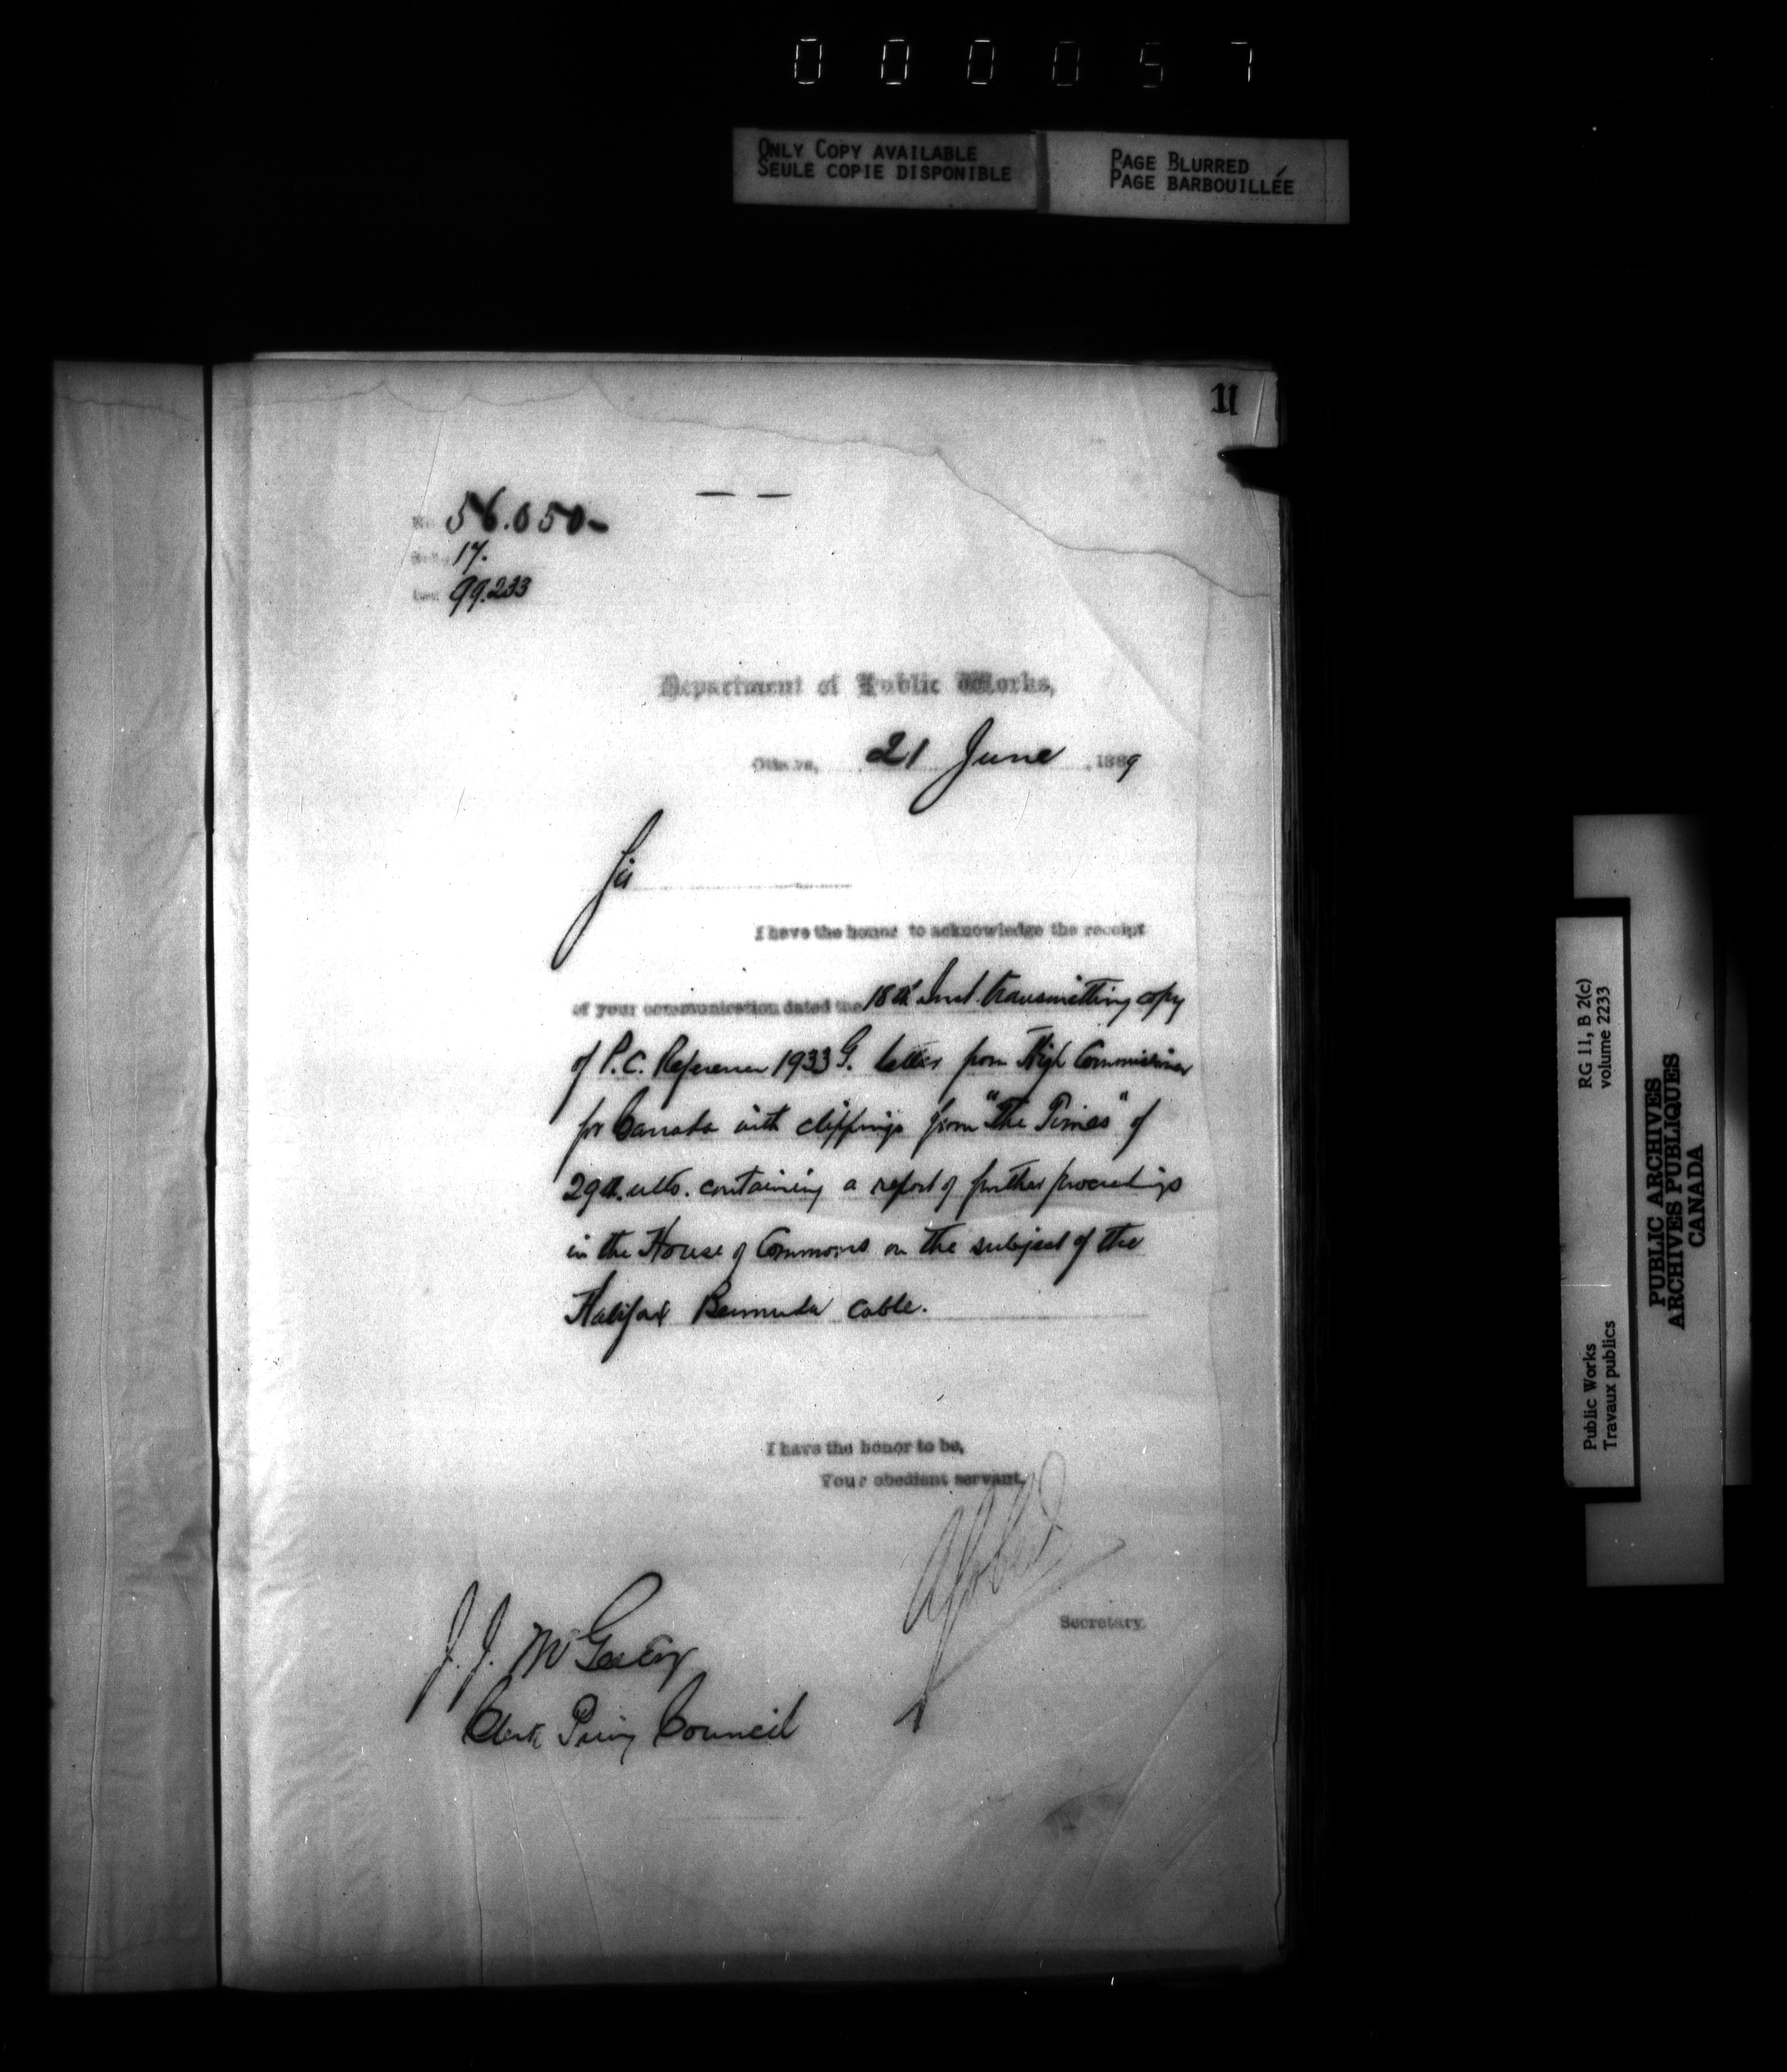 000057
ONLY COPY AVAILABLE
SEULE COPIE DISPONIBLE
PAGE BLURRED
PAGE BARBOUILLÉE
11
No. 56.050-
17.
99.233
Department of Public Works,
Ottawa, 21 June 1889
Sir
I have the honor to acknowledge the receipt
of your communication dated the 18th Inst. transmitting copy
of P.C. Reference 1933 G. letter from High Commissioner
for Canada with clippings from "The Times" of
29th. ulto. containing a report of further proceedings
in the House of Commons on the subject of the
Halifax Bermuda cable.
I have the honor to be,
Your obedient servant,
Secretary.
J. J. McGee Esq
Clerk Privy Council
RG 11, B 2(c)
volume 2233
Public Works
Travaux publics
PUBLIC ARCHIVES
ARCHIVES PUBLIQUES
CANADA